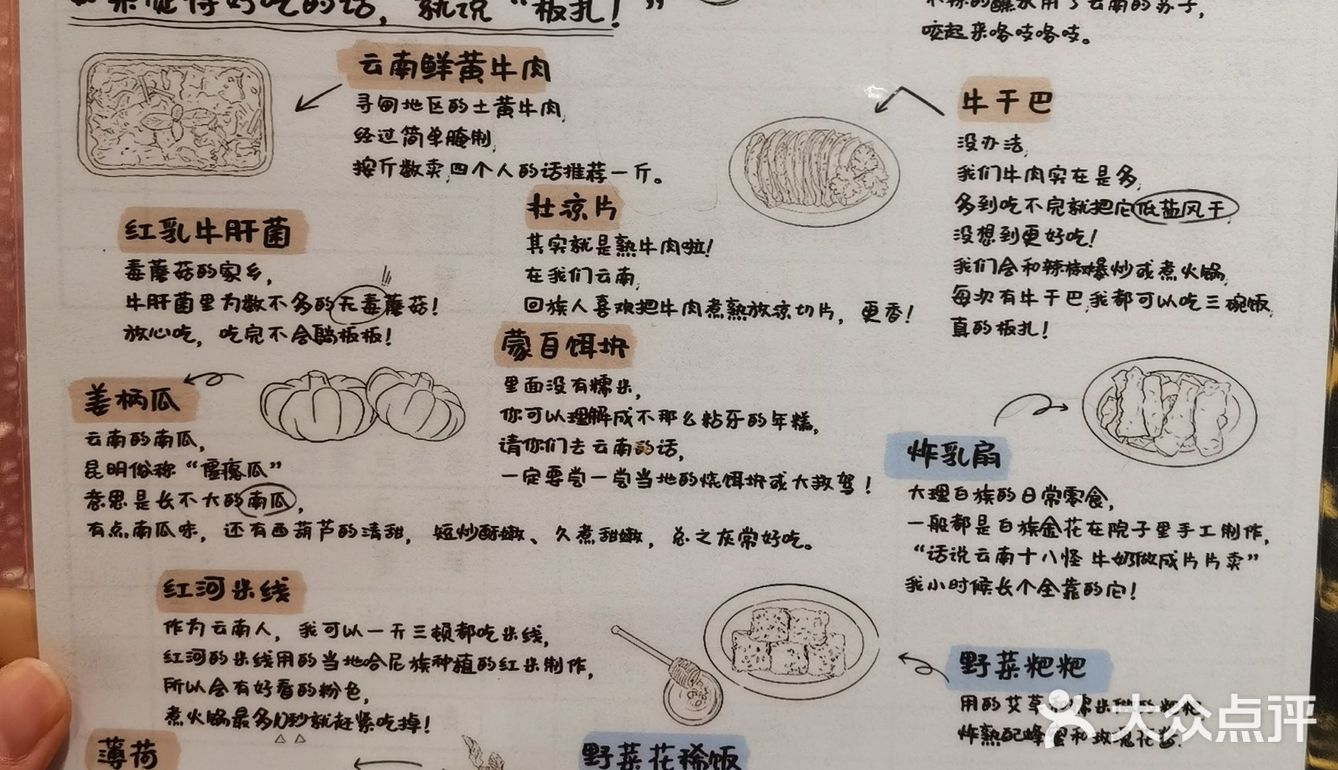 如果觉得好吃的话，就说“板扎！”
不辣的蘸水用了云南的苏子，
咬起来咯吱咯吱。
云南鲜黄牛肉
寻甸地区的土黄牛肉，
经过简单腌制，
按斤数卖，四个人的话推荐一斤。
牛干巴
没办法，
我们牛肉实在是多，
多到吃不完就把它低盐风干，
没想到更好吃！
我们会和辣椒爆炒或煮火锅，
每次有牛干巴，我都可以吃三碗饭，
真的板扎！
壮凉片
其实就是熟牛肉啦！
在我们云南，
回族人喜欢把牛肉煮熟放凉切片，更香！
红乳牛肝菌
毒蘑菇的家乡，
牛肝菌里为数不多的无毒蘑菇！
放心吃，吃完不会躺板板！
蒙自饵块
里面没有糯米，
你可以理解成不那么粘牙的年糕，
请你们去云南的话，
一定要尝一尝当地的烧饵块或大救驾！
姜柄瓜
云南的南瓜，
昆明俗称“
瓜”
意思是长不大的南瓜，
有点南瓜味，还有西葫芦的清甜，短炒酥嫩、久煮甜嫩，总之灰常好吃。
炸乳扇
大理白族的日常零食，
一般都是白族金花在院子里手工制作，
“话说云南十八怪 牛奶做成片片卖”
我小时候长个全靠的它！
红河米线
作为云南人，我可以一天三顿都吃米线，
红河的米线用的当地哈尼族种植的红米制作，
所以会有好看的粉色，
煮火锅最多10秒就赶紧吃掉！
野菜粑粑
用的艾草和糯米
粑粑
炸熟配蜂蜜和玫瑰花酱。
薄荷
野菜花稀饭
大众点评